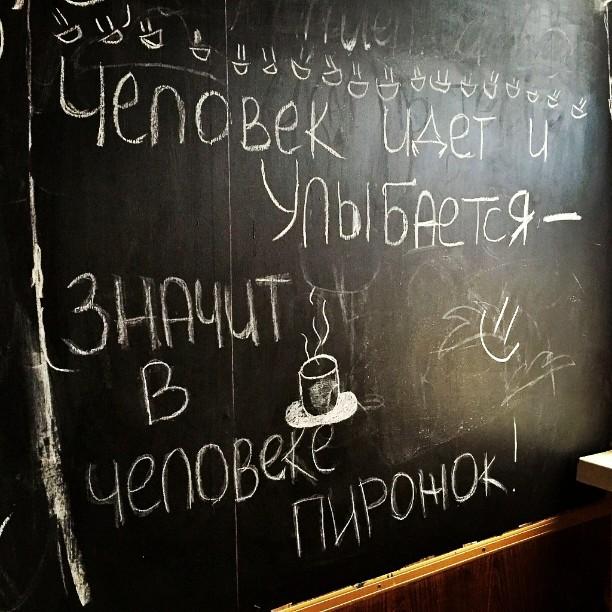 Человек идет и
Улыбается —
Значит
В
человеке
пирожок!